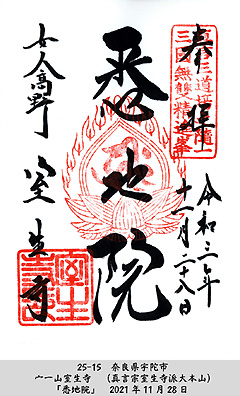 奉拝
令和三年
十一月二十八日
悉地院
女人高野
室生寺
25-15　奈良県宇陀市
宀一山室生寺　（真言宗室生寺派大本山）
「悉地院」　2021年11月28日